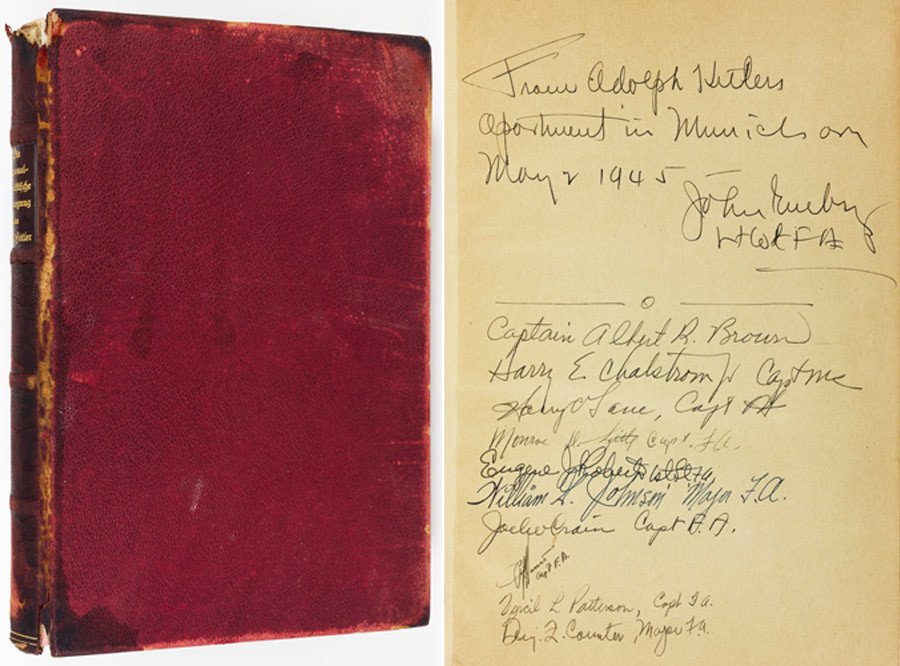 Die
From Adolph Hitlers
apartment in Munich on
May 2 1945
John
Lt Col F A
Captain Albert R. Brown
Harry E. Chalstrom Jr Capt MC
Harry O Lane, Capt FA
Monroe Capt. F.A.
Eugene J Roberts 1st Lt FA
William L. Johnson Major F.A.
Crain Capt F.A.
Capt F.A.
Virgil L. Patterson, Capt F.A.
Benj. F. Counter Major F.A.